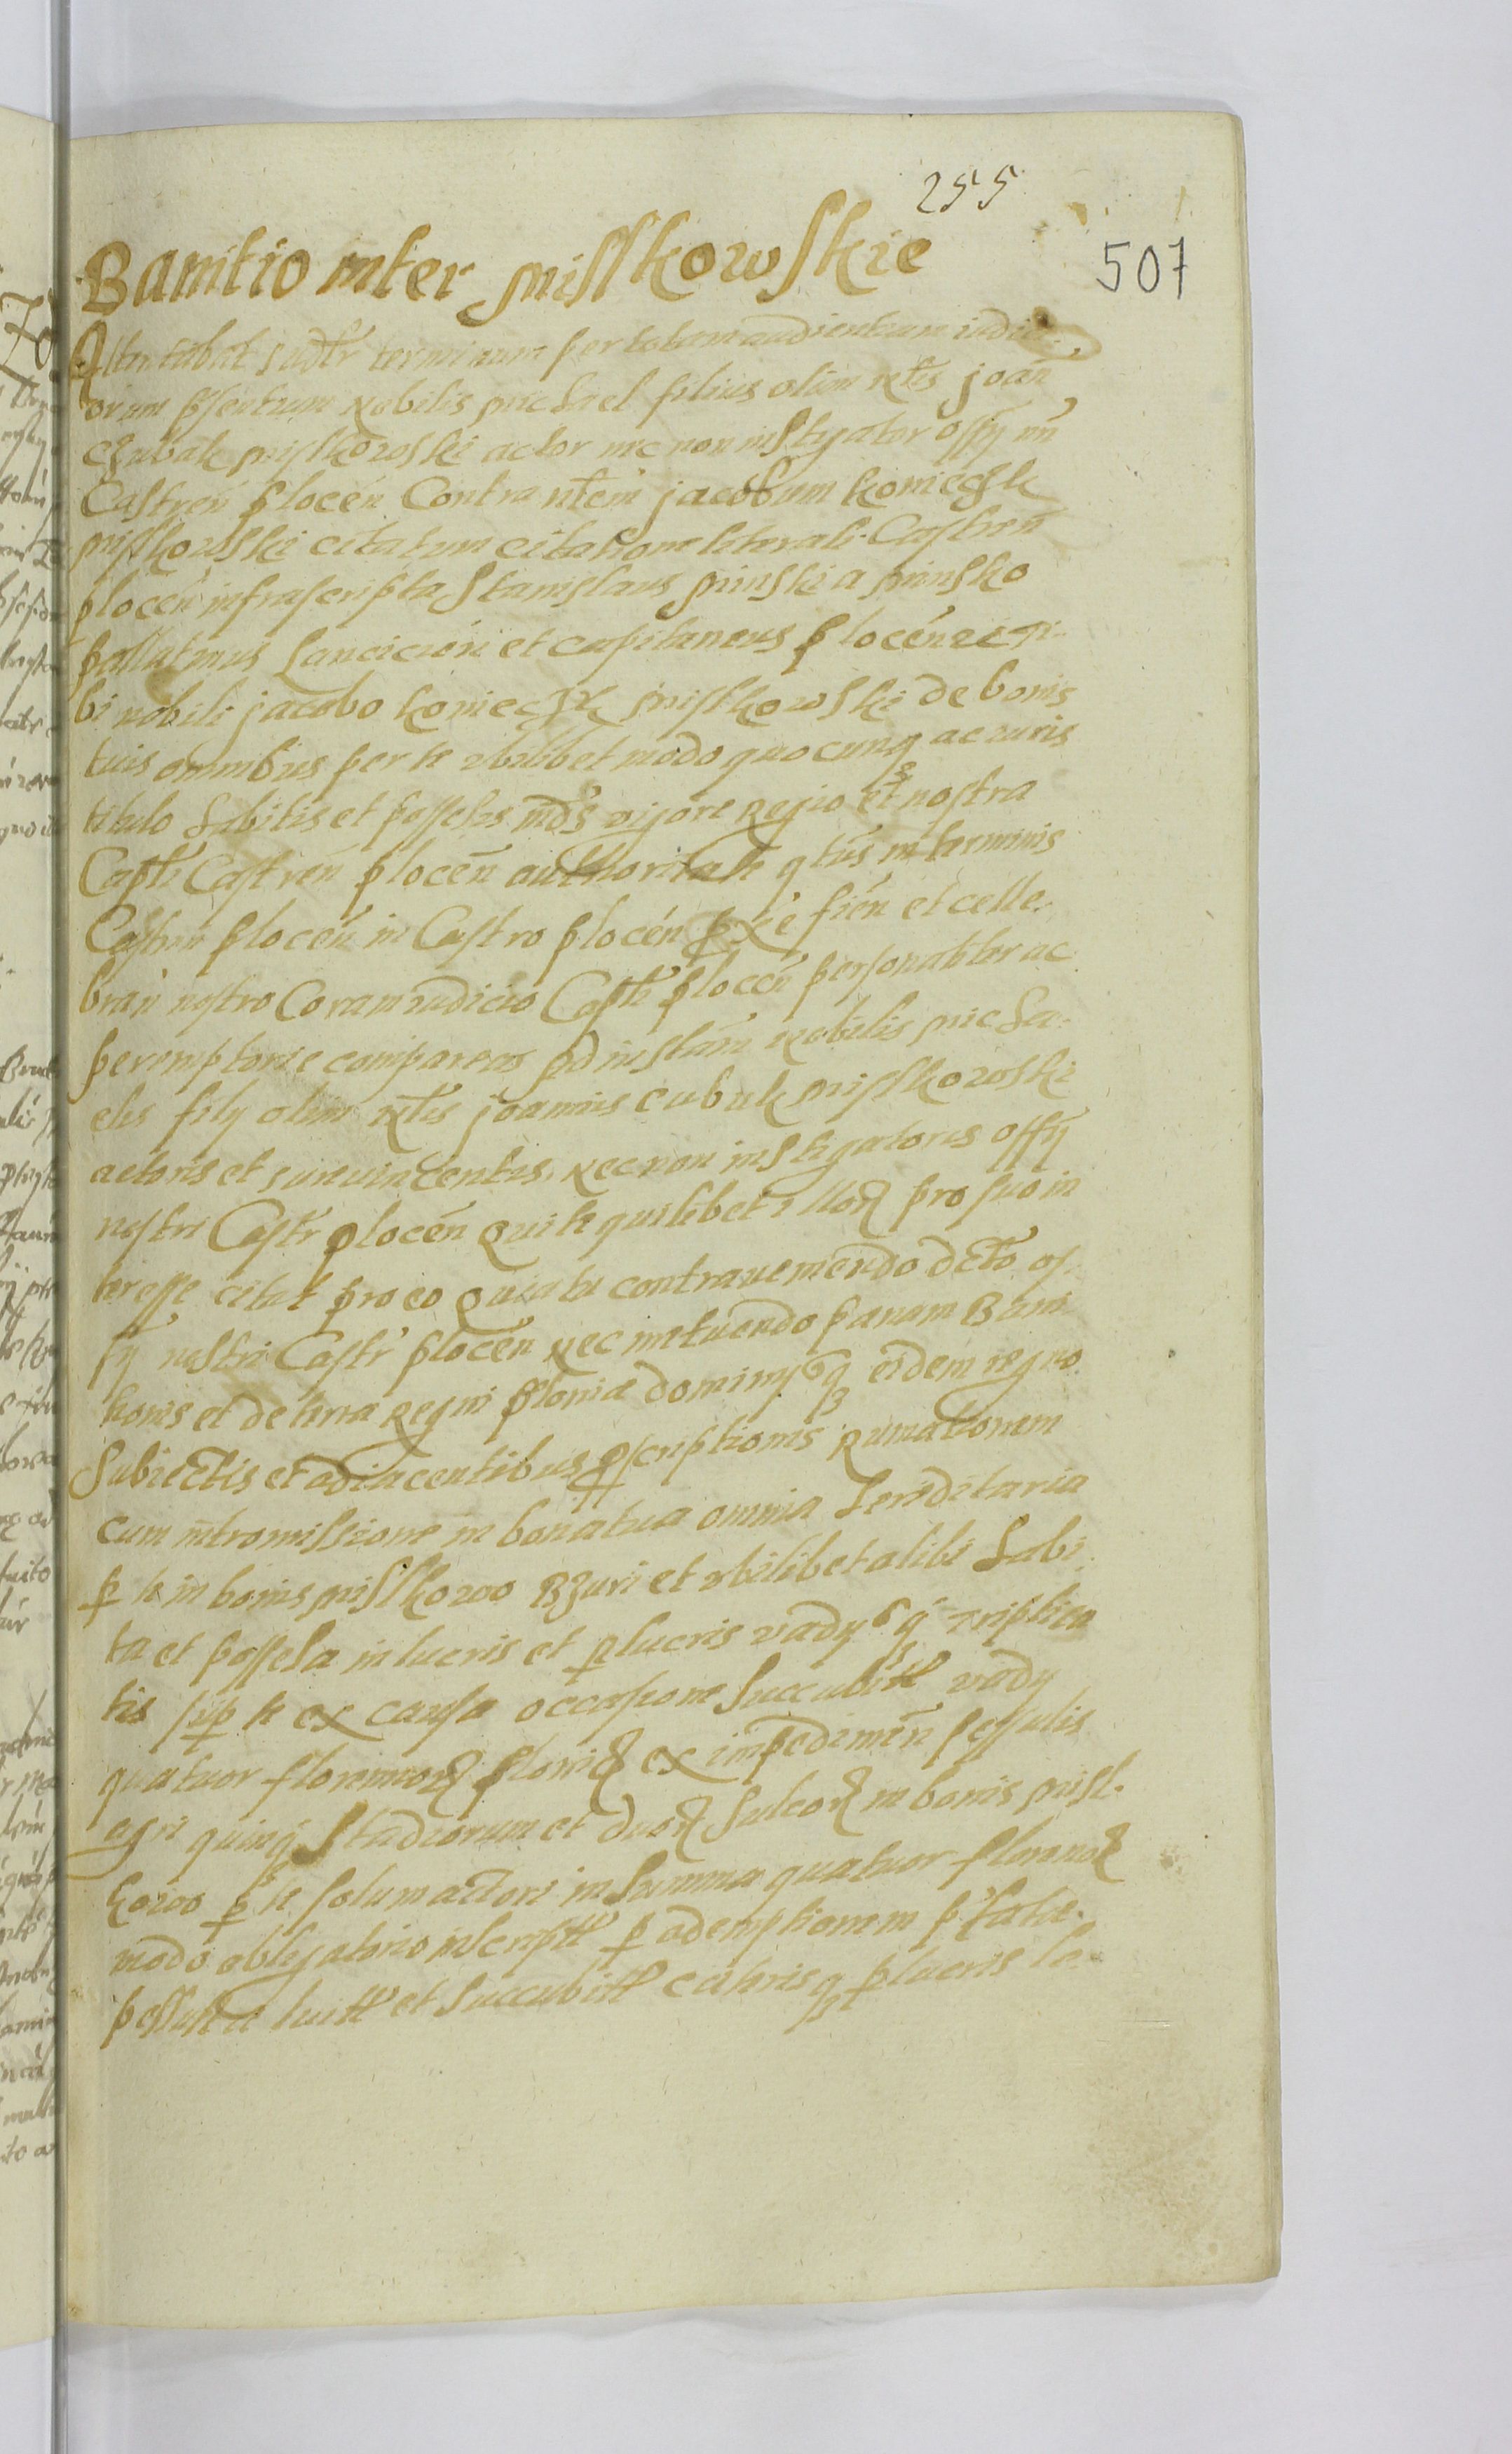 255
507
Banitio inter Misskowskie
Attentabat iudtr terminum per totam audientiam iudici
orum pñtium Nobilis Michael filius olim Ntis Joañ
Czubak Misskowski actor nec non instigator offy nri
Castren Plocen Contra Nttem Jacobum Konieczk
Misskowski citatum citatione literali Castren
Plocen infrascripta Stanislaus Minski a Minsko
Pallatinus Lancicien et capitaneus Plocen etc Ti
bi nobili Jacobo Konieczk Misskowski de bonis
tuis omnibus per te ubilibet modo quocunq ac iuris
titulo habitis et possessis mds vigore Regio et nostra
Capte Castren Plocen authoritate qtus in terminis
Castren Plocen in Castro Plocen fien et celle
bran nostro Coram iudicio Castr Plocen personaliter ac
peremptorie compareas ad instam Nobilis Micha
elis fily olim Ntis Joannis Cubak Misskowski
actoris et iurevincentis Nec non instigatoris offy
nostri Castr Plocen Qui te quilibet illor pro suo in
teresse citat pro eo Quia tu contraveniendo dcto of
fy nostri Castr Plocen Nec metuendo pænam Bani
tionis et de terra Regni Ploniæ dominysq eidem regno
Subiectis et adiacentibus pscriptionis Rumationem
cum intromissione in bona tua omnia hereditaria
p te in bonis Misskowo Bzuri et ubilibet alibi habi
ta et possessa in lucris et plucris vadysq triplica
tis sup te ex causa occasione Succubitt vady
quatuor florenor Plonicz ex impedimen pessulis
agri quinq Stadiorum et duor Sulcor in bonis Miss
kowo p te solum actori in Summa quatuor florenor
modo obligatorio inscriptt p ademptionem pfatæ
pessulæ luitt et Succubitt cæterisq plucris la